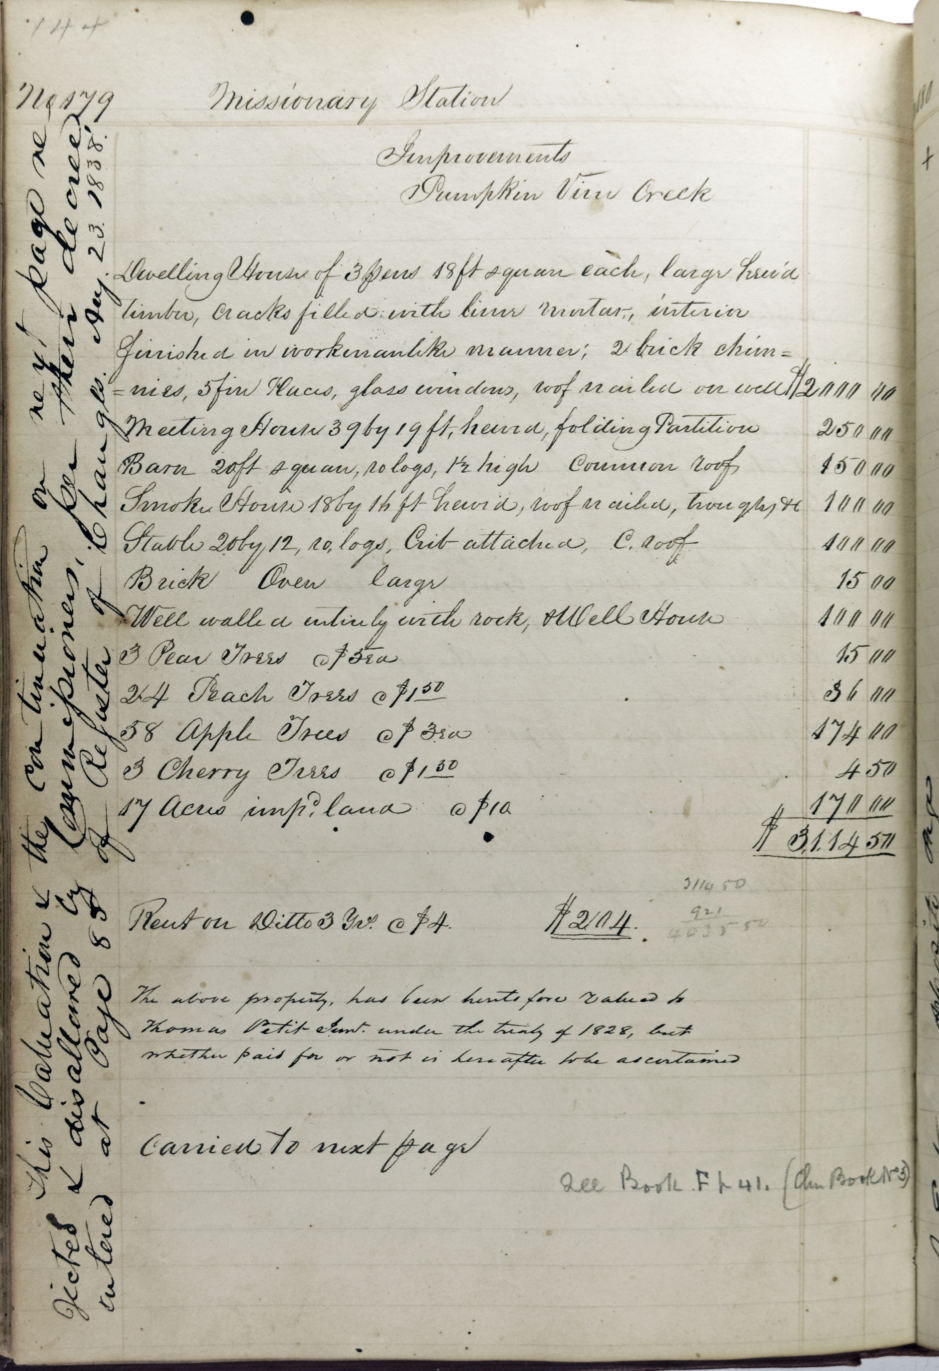 144
No 179 Missionary Station
Improvements
Pumpkin Vine Creek
Dwelling House of 3 pens 18 ft square each, large hew'd
timber, cracks filled with lime mortar, interior
finished in workmanlike manner; 2 brick chim=
=nies, 5 fire places, glass windows, roof nailed on well $2000 00
Meeting House 39 by 19 ft, hew'd, folding Partition 250 00
Barn 20 ft square, ro logs, 1½ high Common roof 150 00
Smoke House 18 by 16 ft hew'd, roof nailed, trough, &c 100 00
Stable 20 by 12, ro, logs, Crib attached, C. roof 100 00
Brick Oven large 15 00
Well walled entirely with rock, & Well House 100 00
3 Pear Trees @ $5 ea 15 00
24 Peach Trees @ $1 50 36 00
58 Apple Trees @ $3 ea 174 00
3 Cherry Trees @ $1 50 4 50
17 Acres imp.d land @ $10 170 00
$ 3,114 50
3114 50
921
4035 50
Rent on Ditto 3 Yrs. @ $4. $204.
The above property, has been heretofore valued to
Thomas Petit Junr. under the treaty of 1828, but
whether paid for or not is hereafter to be ascertained
Carried to next page
See Book F p 41. (Chn Book No 3)
This Valuation & the continuation on next page re
jected & disallowed by Commissioners, per their decree
entered at Page 85 of Register of Changes. Aug. 23. 1838.